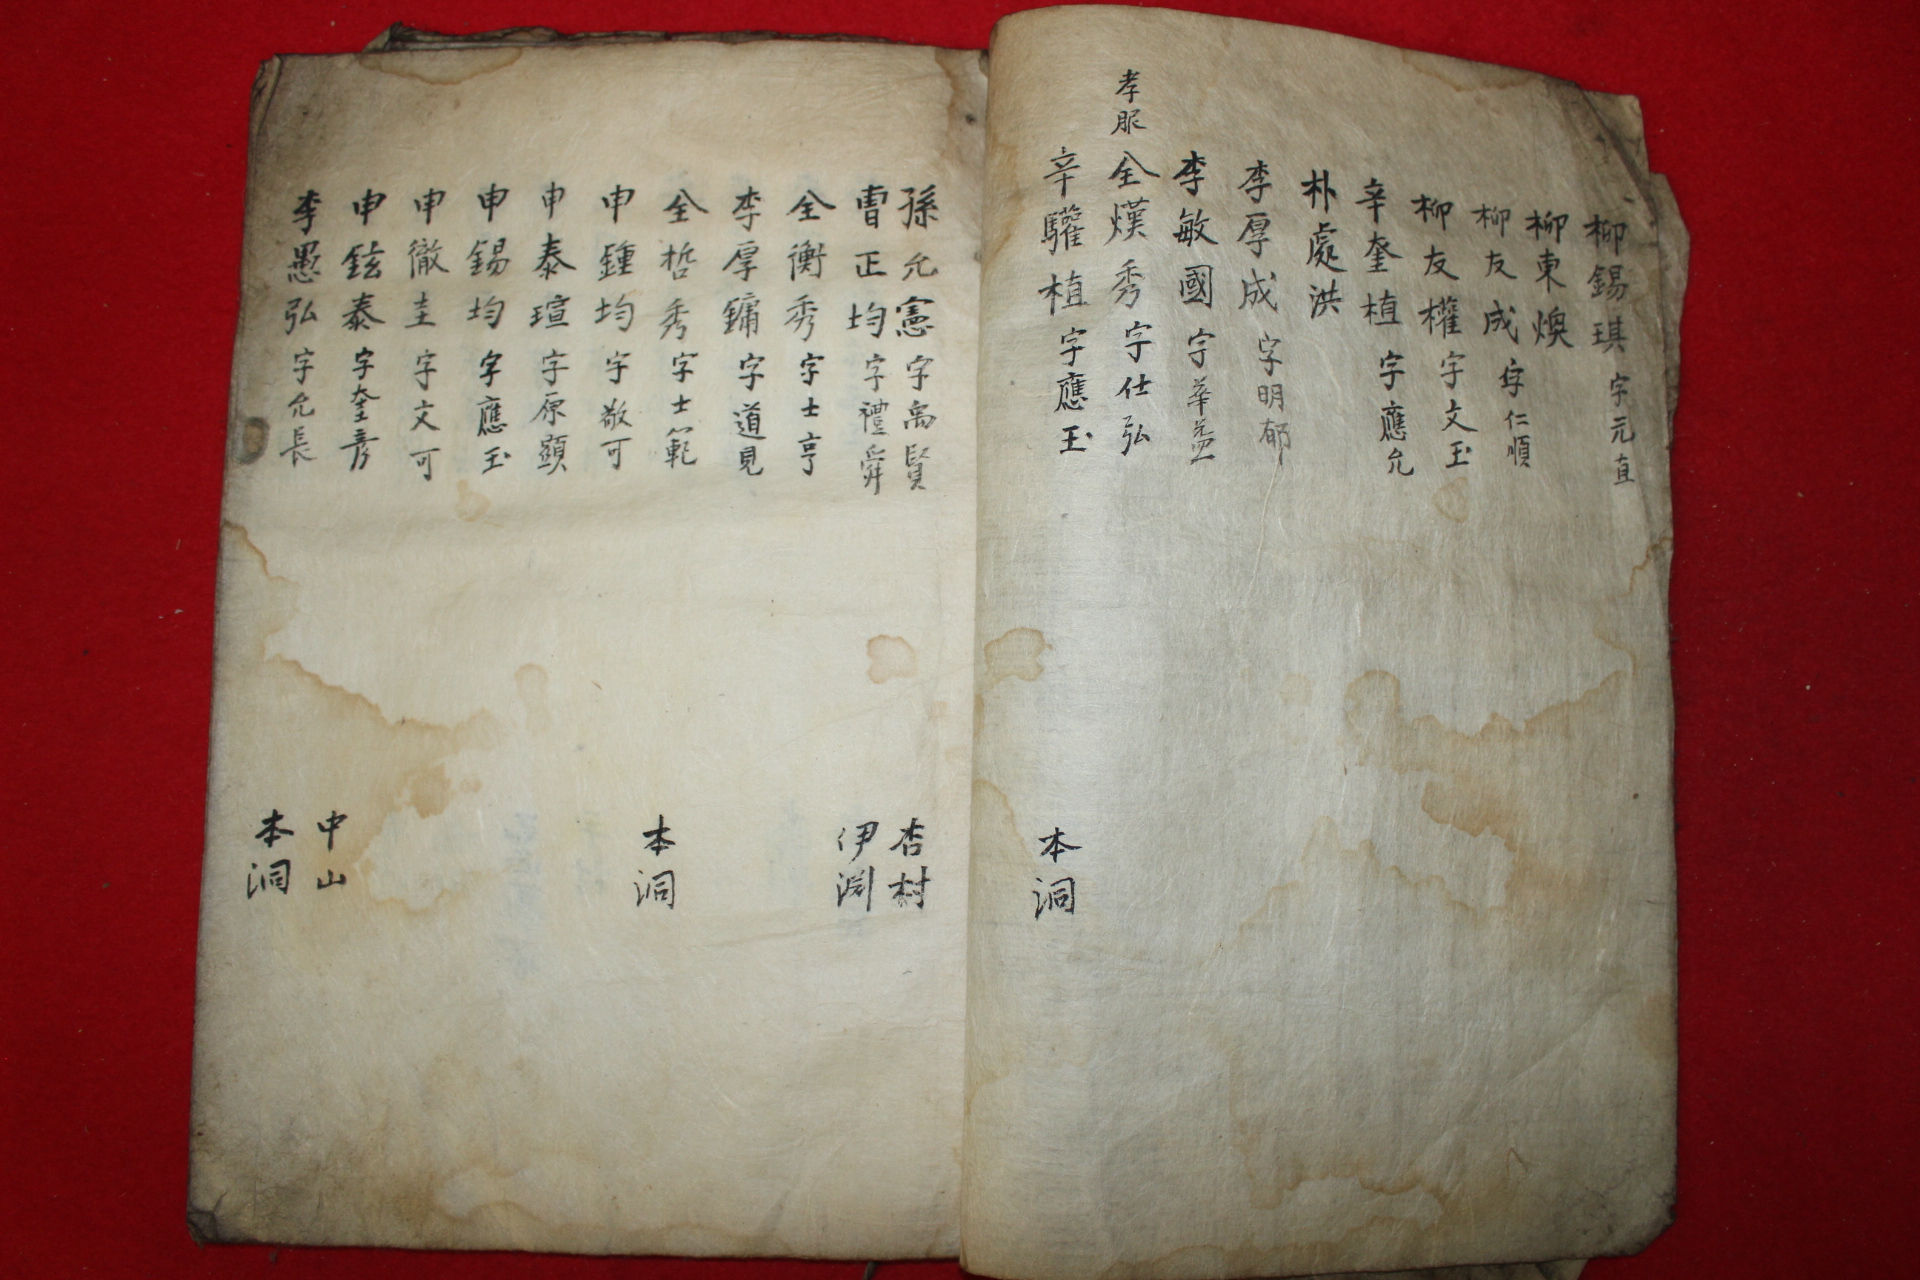 柳錫琪 字元直
柳東煥
柳友成 字仁順
柳友權 字文玉
辛奎植 字應允
朴處洪
李厚成 字明郁
李敏國 字華益
孝服 全熯秀 字仕弘
辛驩植 字應玉 本洞
孫允憲 字禹賢 杏村
曺正均 字禮舜 伊淵
全衡秀 字士亨
李厚鏞 字道見
全哲秀 字士範 本洞
申鍾均 字敬可
申泰瑄 字原顯
申錫均 字應玉
申徹圭 字文可
申鉉泰 字奎彦 中山
李愚弘 字允長 本洞